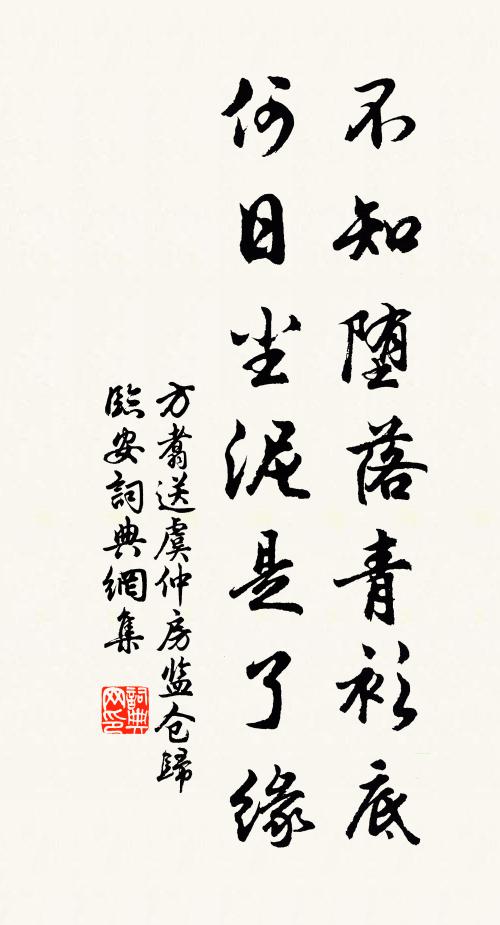 不知堕落青衫底
何日尘泥是了缘
方翥送虞仲房监仓歸
臨安詞典網集
詞典網印